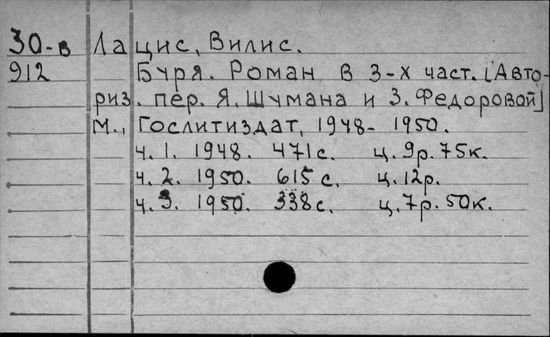 30-в Лацис, Вилис.
912 Буря. Роман в 3-х част. [Авто-
риз. пер. Я. Шумана и З. Федоровой]
М., Гослитиздат, 1948-1950.
ч. 1. 1948. 471с. ц. 9р. 75к.
ч. 2. 1950. 615с. ц. 12р.
ч. 3. 1950. 338с. ц. 7р. 50к.